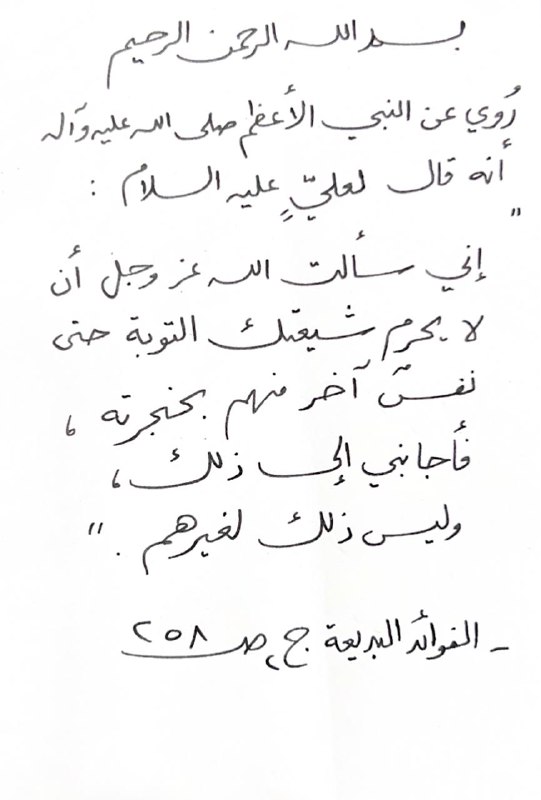 بسم الله الرحمن الرحيم
رُوي عن النبي الأعظم صلى الله عليه وآله
أنه قال لعليٍّ عليه السلام :
"
إني سألت الله عز وجل أن
لا يحرم شيعتك التوبة حتى
نفسٌ آخر منهم بحنجرته ،
فأجابني إلى ذلك ،
وليس ذلك لغيرهم . "
- الفوائد البديعة ج٢ ص ٢٥٨